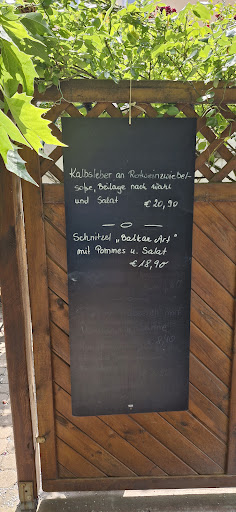 Kalbsleber an Rotweinzwiebel-
soße, Beilage nach Wahl
und Salat € 20,90
Schnitzel „Balkan Art"
mit Pommes u. Salat
€ 18,90